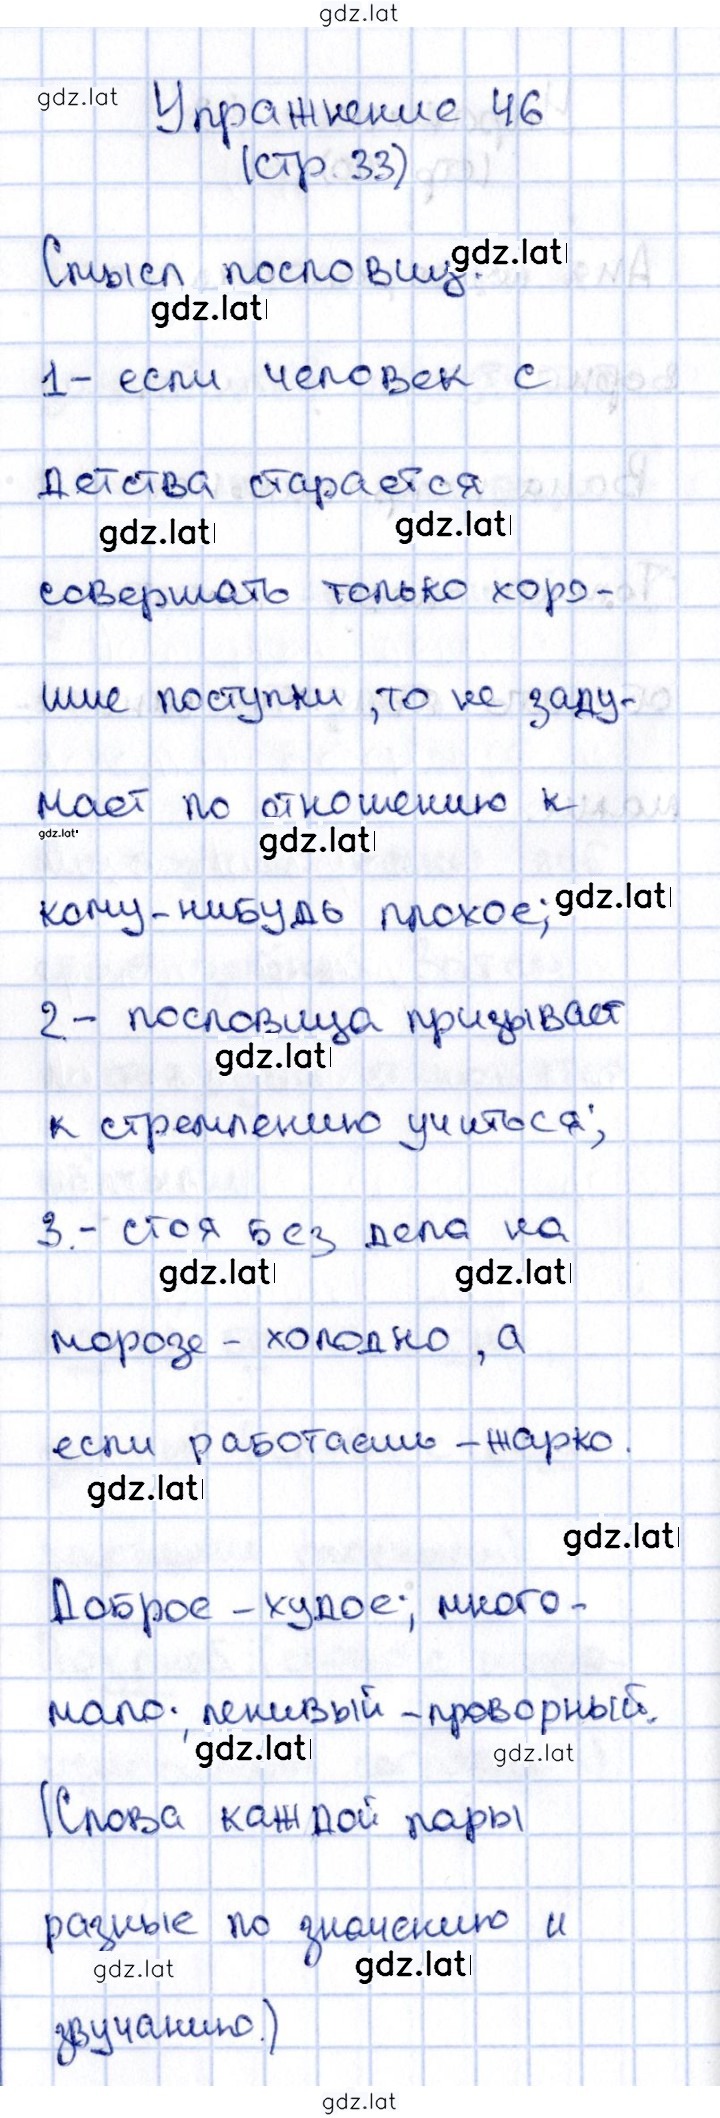 gdz.lat
gdz.lat
Упражнение 46
(стр 33)
gdz.lat
Смысл пословиц:
gdz.lat
1- если человек с
детства старается
gdz.lat gdz.lat
совершать только хоро-
шие поступки, то не заду-
мает по отношению к
gdz.lat gdz.lat
кому-нибудь плохое; gdz.lat
2.- пословица призывает
gdz.lat
к стремлению учиться;
3.- стоя без дела на
gdz.lat gdz.lat
морозе - холодно, а
если работаешь - жарко.
gdz.lat
gdz.lat
Доброе - худое; много-
мало; ленивый - проворный.
gdz.lat gdz.lat
(Слова каждой пары
разные по значению и
gdz.lat gdz.lat
звучанию.)
gdz.lat